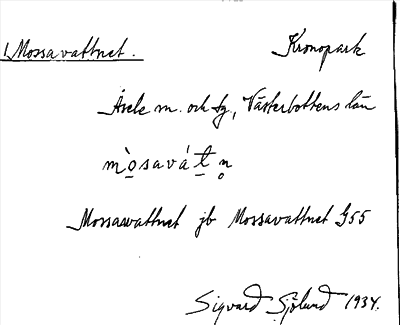 1 Mossavattnet. Kronopark
Åsele sn. och tg, Västerbottens län
mò̱savát̠n̥
Mossavattnet jb Mossavattnet G55
Sigvard Sjölund 1934.